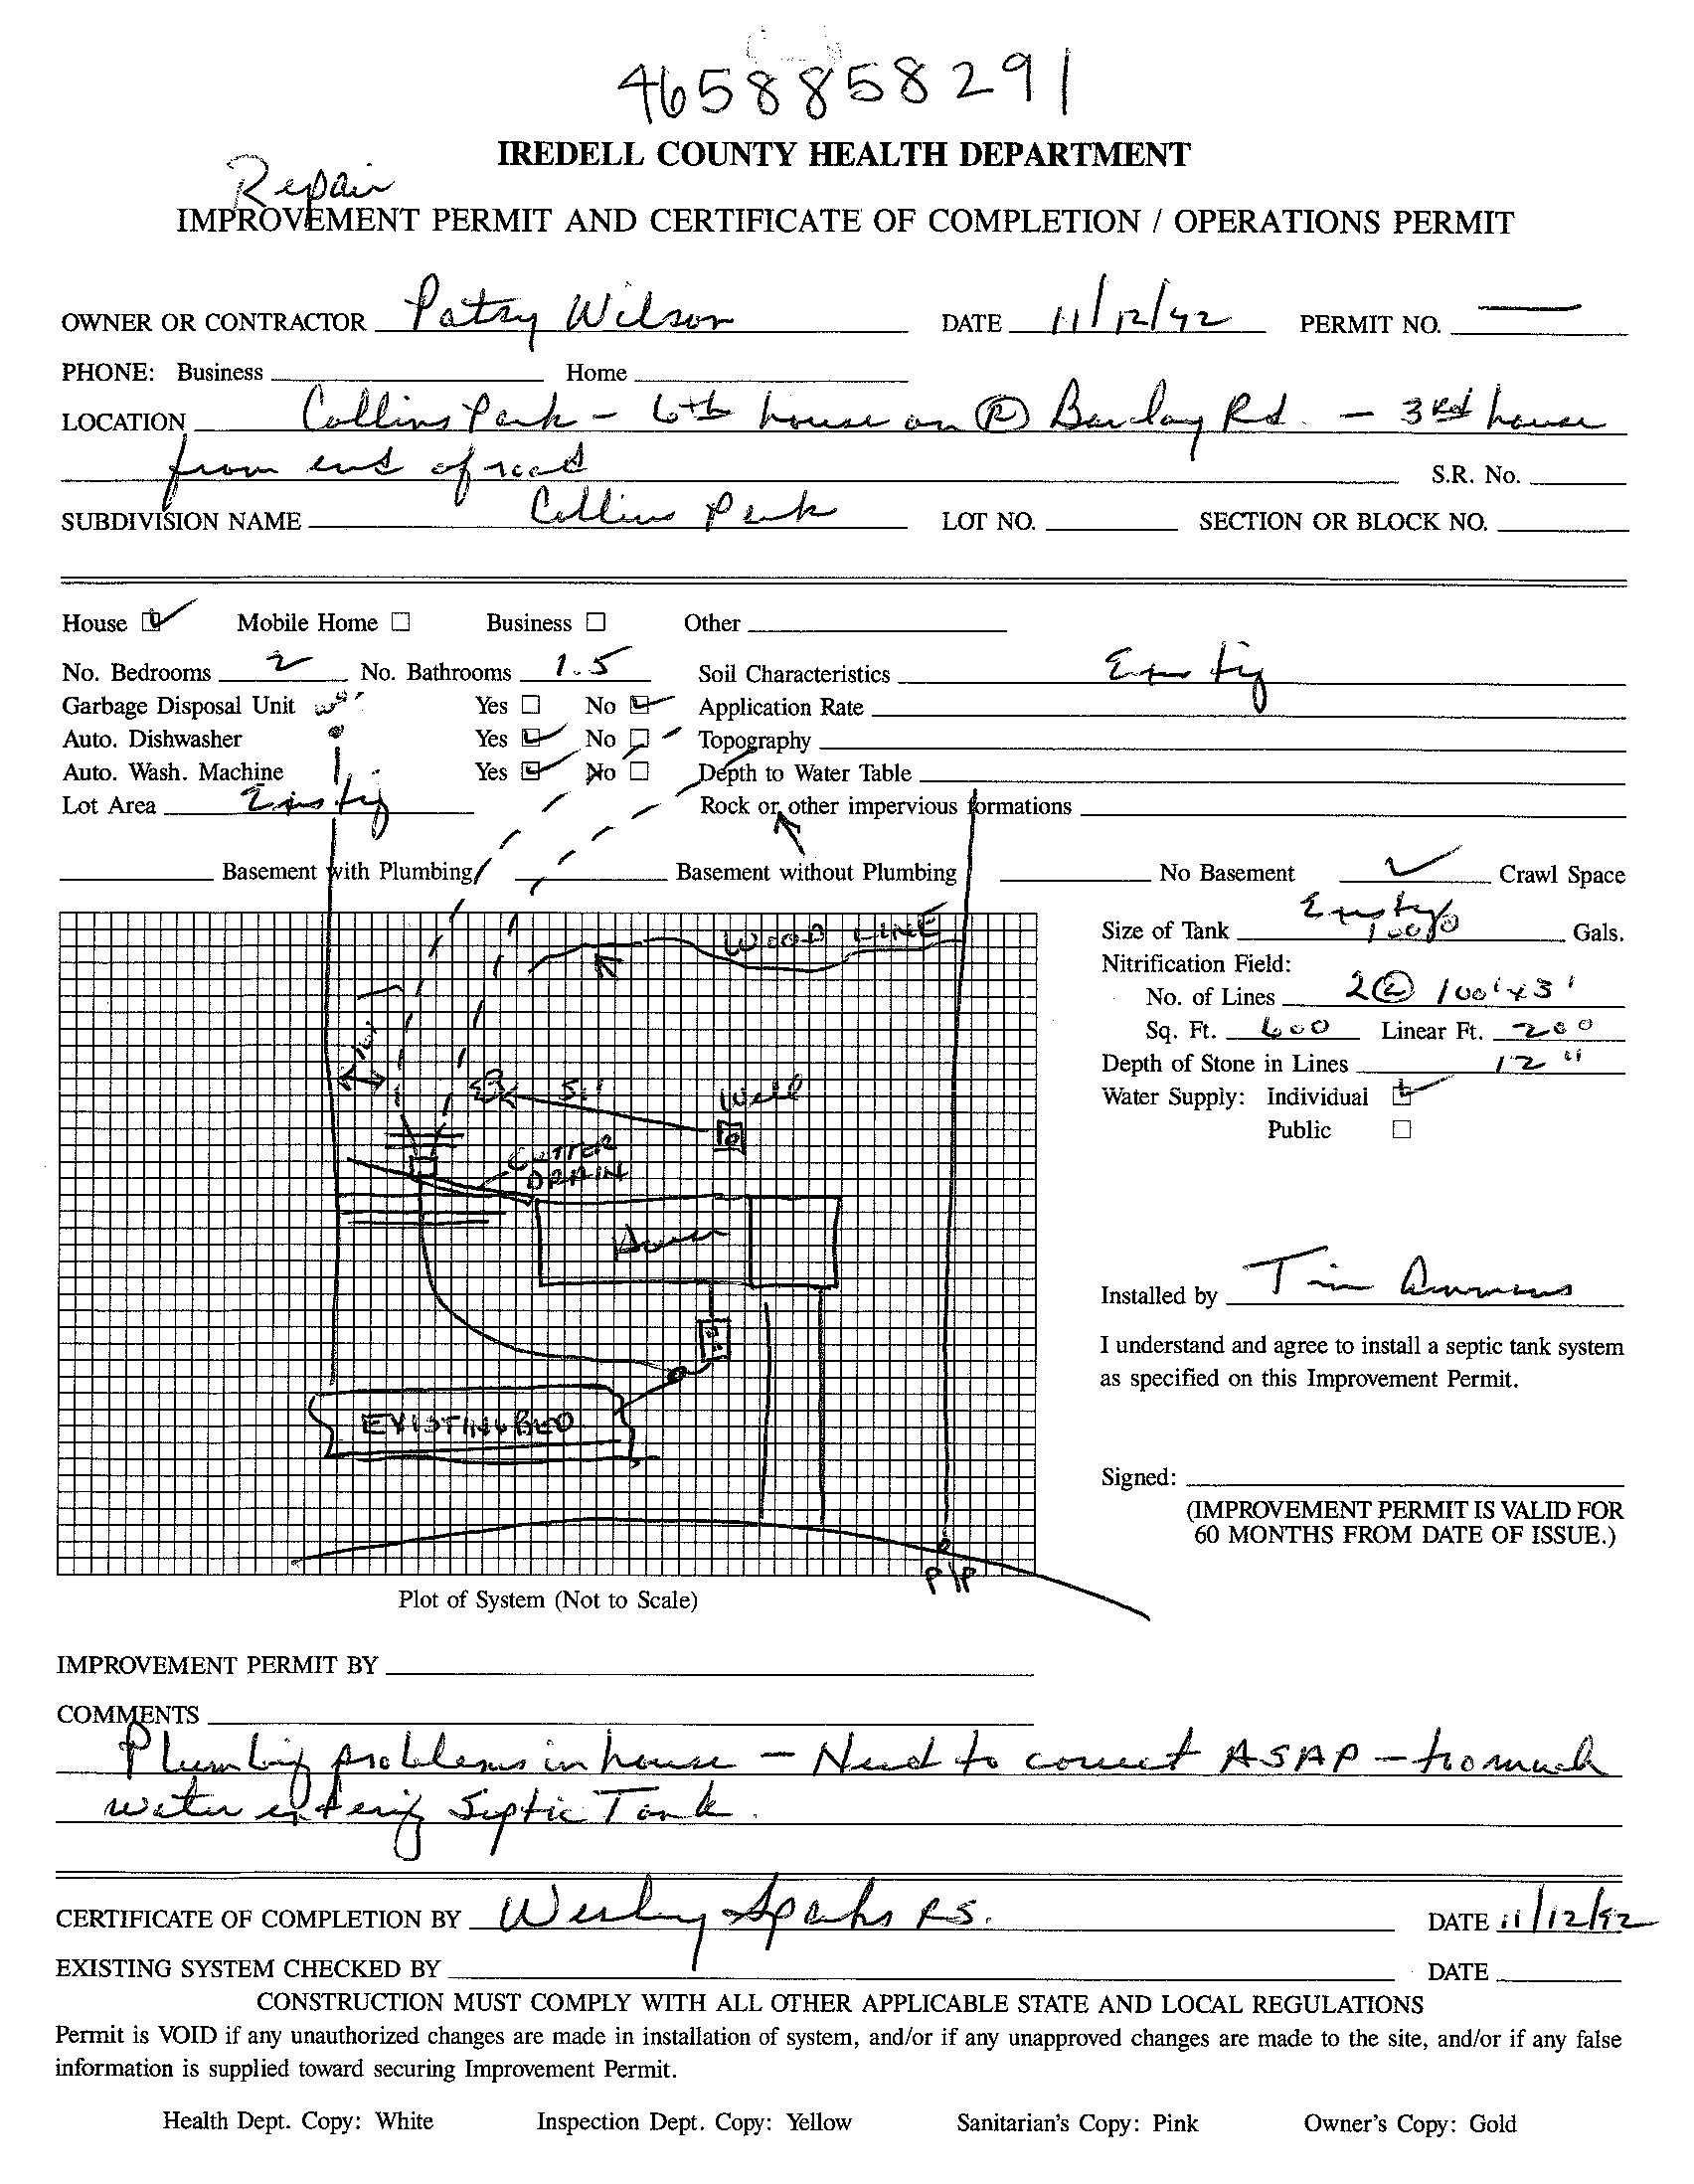 4658858291
IREDELL COUNTY HEALTH DEPARTMENT
Repair
IMPROVEMENT PERMIT AND CERTIFICATE OF COMPLETION / OPERATIONS PERMIT
OWNER OR CONTRACTOR Patsy Wilson DATE 11/12/92 PERMIT NO. —
PHONE: Business Home
LOCATION Collins Park - 6th house on Ⓡ Barclay Rd. - 3rd house
from end of road S.R. No.
SUBDIVISION NAME Collins Park LOT NO. SECTION OR BLOCK NO.
House ☑ Mobile Home ☐ Business ☐ Other
No. Bedrooms 2 No. Bathrooms 1.5 Soil Characteristics
Garbage Disposal Unit Yes ☐ No ☑ Application Rate
Auto. Dishwasher Yes ☑ No ☐ Topography
Auto. Wash. Machine Yes ☑ No ☐ Depth to Water Table
Lot Area Rock or other impervious formations
Basement with Plumbing Basement without Plumbing No Basement ✓ Crawl Space
WOOD LINE
Size of Tank 1000 Gals.
Nitrification Field:
No. of Lines 2 @ 100' x 3'
Sq. Ft. 600 Linear Ft. 200
Depth of Stone in Lines 12"
Water Supply: Individual ☑
Public ☐
Well
GUTTER
DRAIN
House
Installed by Tim
I understand and agree to install a septic tank system
as specified on this Improvement Permit.
EXISTING BED
Signed:
(IMPROVEMENT PERMIT IS VALID FOR
60 MONTHS FROM DATE OF ISSUE.)
P/P
Plot of System (Not to Scale)
IMPROVEMENT PERMIT BY
COMMENTS
Plumbing problems in house - Need to correct ASAP - too much
water entering Septic Tank.
CERTIFICATE OF COMPLETION BY Wesley Sparks R.S. DATE 11/12/92
EXISTING SYSTEM CHECKED BY DATE
CONSTRUCTION MUST COMPLY WITH ALL OTHER APPLICABLE STATE AND LOCAL REGULATIONS
Permit is VOID if any unauthorized changes are made in installation of system, and/or if any unapproved changes are made to the site, and/or if any false
information is supplied toward securing Improvement Permit.
Health Dept. Copy: White Inspection Dept. Copy: Yellow Sanitarian's Copy: Pink Owner's Copy: Gold